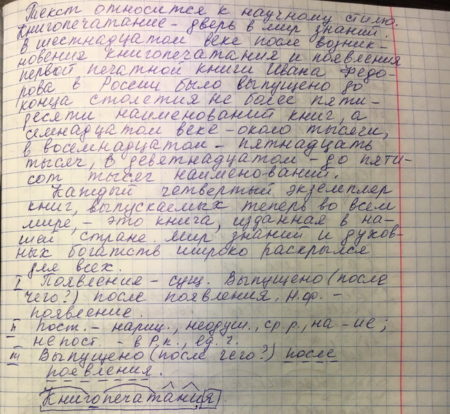 Текст относится к научному стилю.
Книгопечатание - дверь в мир знаний.
В шестнадцатом веке после возник-
новения книгопечатания и появления
первой печатной книги Ивана Федо-
рова в России было выпущено до
конца столетия не более пяти-
десяти наименований книг, а
семнадцатом веке - около тысячи,
в восемнадцатом - пятнадцать
тысяч, в девятнадцатом - до пяти-
сот тысяч наименований.
Каждый четвертый экземпляр
книг, выпускаемых теперь во всем
мире, - это книга, изданная в на-
шей стране. Мир знаний и духов-
ных богатств широко раскрылся
для всех.
I Появление - сущ. Выпущено (после
чего?) после появления. Н.ф. -
появление.
II Пост. - нариц., неодуш., ср.р., на -ие;
непост - в Р.к., ед.ч.
III Выпущено (после чего?) после
появления.
Книгопечатания